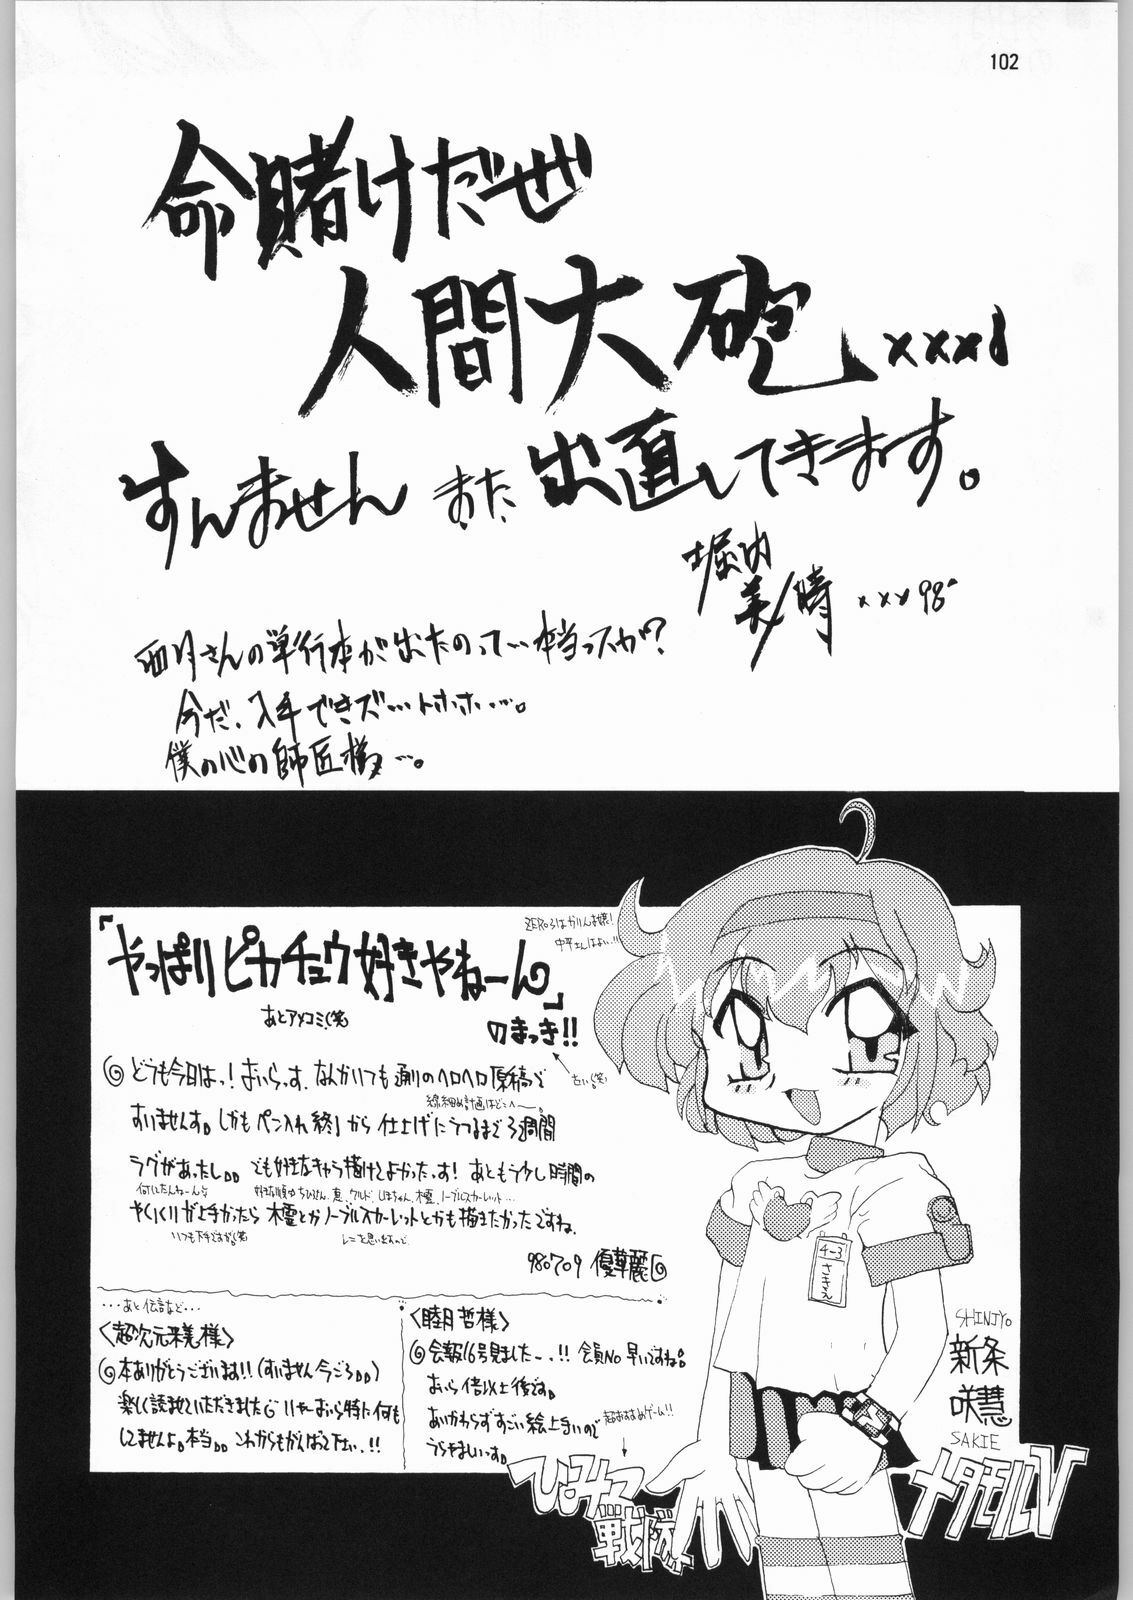 102
命賭けだぜ
人間大砲...xxx!
すんません また出直してきます。
堀内
美晴 xxx 98'
西月さんの単行本が出たのって…本当っスか?
今だ、入手できズ…トホホ…。
僕の心の師匠様…。
中平さんはよい!!
「やっぱりピカチュウ好きやねーん」
あとアメコミ(笑)
のまっき!!
どうも今日は!おいらっす。なんかいつも通りのヘロヘロ原稿で
すいませんす。しかもペン入れ終了から仕上げにうつるまで3週間
ラグがあったし。。でも好きなキャラ描けてよかったっす!あともう少し時間の
何してたんねーん
やりくりが上手かったら木霊とかノーブルスカーレットとかも描きたかったですね。
いつも下手ですが(笑)
980709 優華麗
・・・あと伝言など・・・
<超次元来美様>
本ありがとうございます!!(すいません今ごろ。。)
楽しく読ませていただきました いやーおいら特に何も
してませんよ。本当。。これからもがんばって下さい.!!
<睦月哲様>
会報16号見ましたー..!! 会員No.早いですね。
おいら倍以上後です。
あいかわらずすごい絵上手いので
うらやましいっす。
超おすすめゲーム!!
4-3
さきえ
SHINJYO
新条
咲慧
SAKIE
ひみつ
戦隊
メタモルV